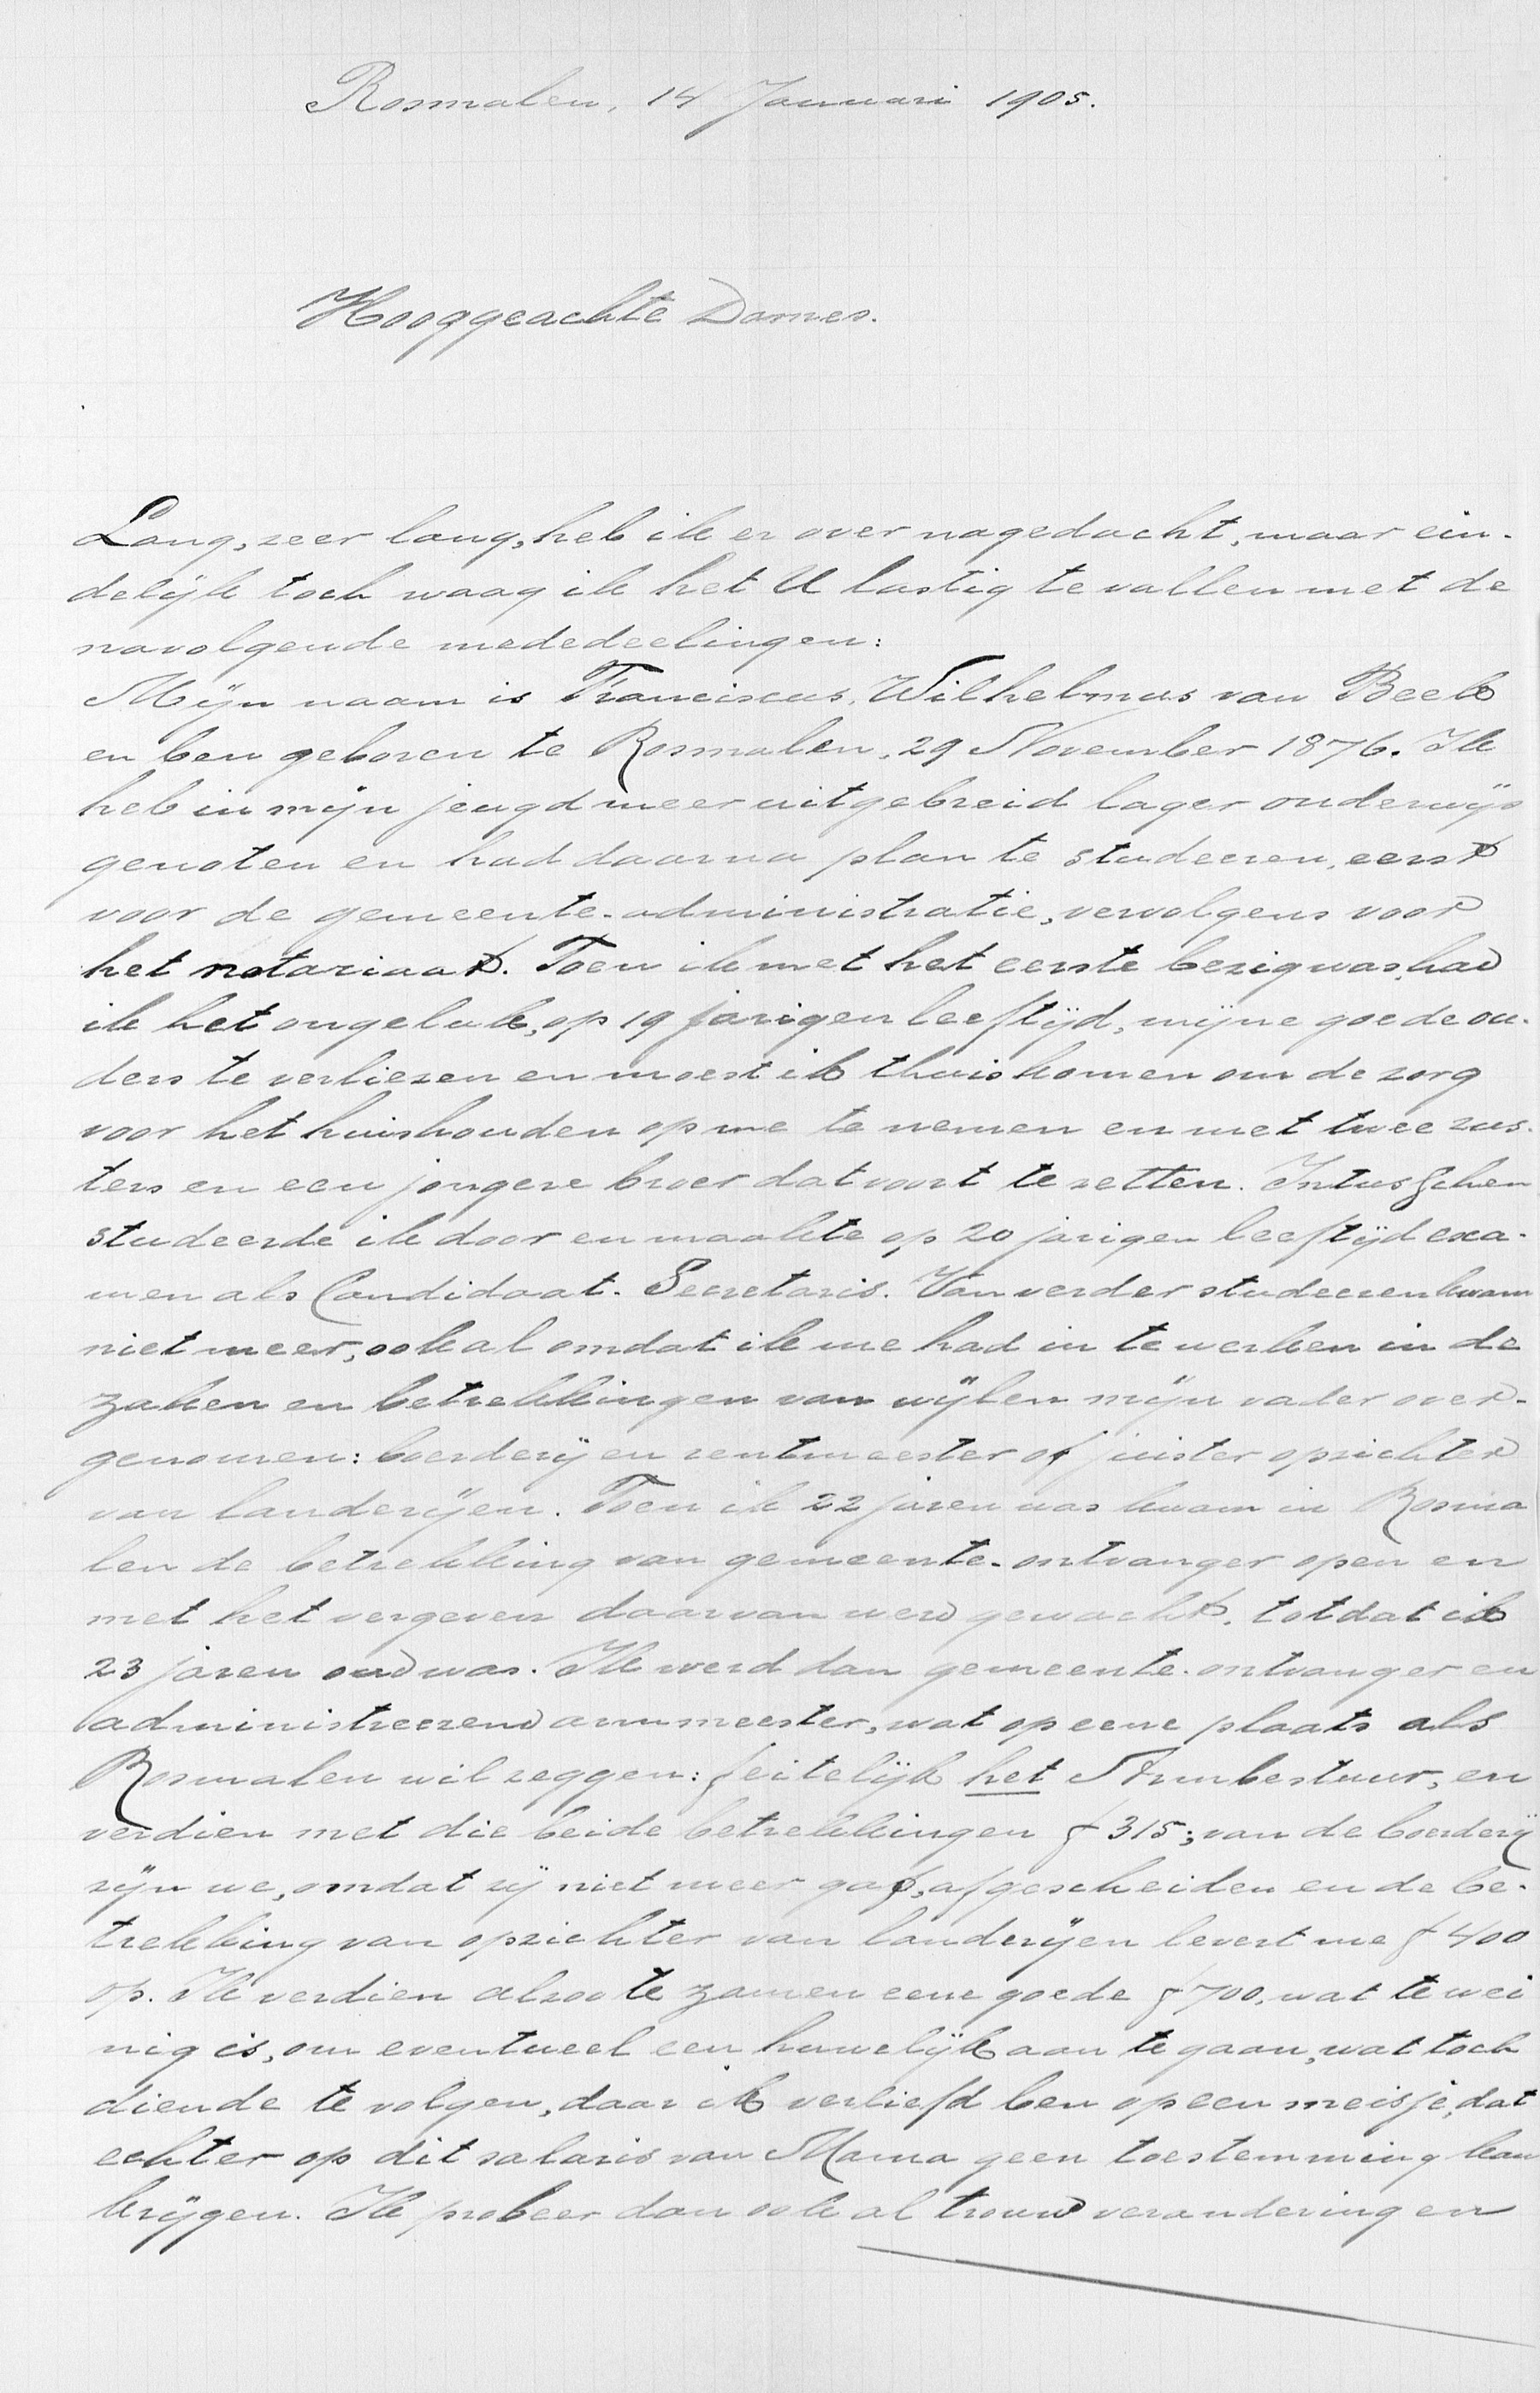 Rosmalen, 14 Januari 1905.
Hooggeachte Dames.
Lang, zeer lang, heb ik er over nagedacht, maar ein-
delijk toch waag ik het U lastig te vallen met de
navolgende mededeelingen:
Mijn naam is Franciscus, Wilhelmus van Beek
en ben geboren te Rosmalen, 29 November 1876. Ik
heb in mijn jeugd meer uitgebreid lager onderwijs
genoten en had daarna plan te studeeren, eerst
voor de gemeente-administratie, vervolgens voor
het notariaat. Toen ik met het eerste bezig was, had
ik het ongeluk, op 19 jarigen leeftijd, mijne goede ou-
ders te verliezen en moest ik thuis komen om de zorg
voor het huishouden op me te nemen en met twee zus-
ters en een jongere broer dat voort te zetten. Intusschen
studeerde ik door en maakte op 20 jarigen leeftijd exa-
men als Candidaat-Secretaris. Van verder studeeren kwam
niet meer, ook al omdat ik me had in te werken in de
zaken en betrekkingen van wijlen mijn vader over-
genomen: boerderij en rentmeester of juister opzichter
van landerijen. Toen ik 22 jaren was kwam in Rosma
len de betrekking van gemeente-ontvanger open en
met het vergeven daarvan werd gewacht, totdat ik
23 jaren oud was. Ik werd dan gemeente-ontvanger en
administreerend armmeester, wat op eene plaats als
Rosmalen wil zeggen: feitelijk het Armbestuur, en
verdien met die beide betrekkingen f 315; van de boerderij
zijn we, omdat zij niet meer gaf, afgescheiden en de be-
trekking van opzichter van landerijen levert me f 400
op. Ik verdien alzoo te zamen eene goede f 700, wat te wei
nig is, om eventueel een huwelijk aan te gaan, wat toch
diende te volgen, daar ik verliefd ben op een meisje, dat
echter op dit salaris van Mama geen toestemming kan
krijgen. Ik probeer dan ook al trouw verandering en